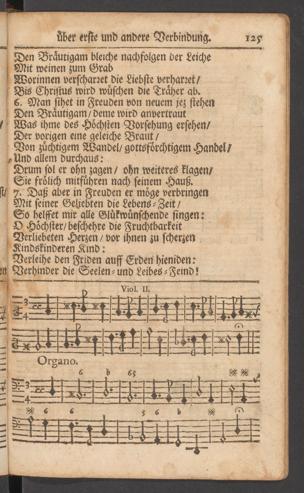 über erste und andere Verbindung. 125
Den Bräutigam bleiche nachfolgen der Leiche
Mit weinen zum Grab
Worinnen verscharret die Liebste verharret/
Bis Christus wird wüschen die Träher ab.
6. Man sihet in Freuden von neuem jez stehen
Den Bräutigam/ deme wird anvertraut
Was ihme des Höchsten Vorsehung ersehen/
Der vorigen eine gleiche Braut/
Von züchtigem Wandel/ gottsförchtigem Handel/
Und allem durchaus:
Drum sol er ohn zagen/ ohn weiteres klagen/
Sie frölich mitführen nach seinem Hauß.
7. Daß aber in Freuden er möge verbringen
Mit seiner Geliebten die Lebens-Zeit/
So helffet mir alle Glükwünschende singen:
O Höchster/ beschehre die Fruchtbarkeit
Verliebeten Herzen/ vor ihnen zu scherzen
Kindskinderen Kind:
Verleihe den Friden auff Erden hieniden:
Verhinder die Seelen- und Leibes-Feind!
Viol. II.
Organo.
6 b 65
6 6 5 6 b